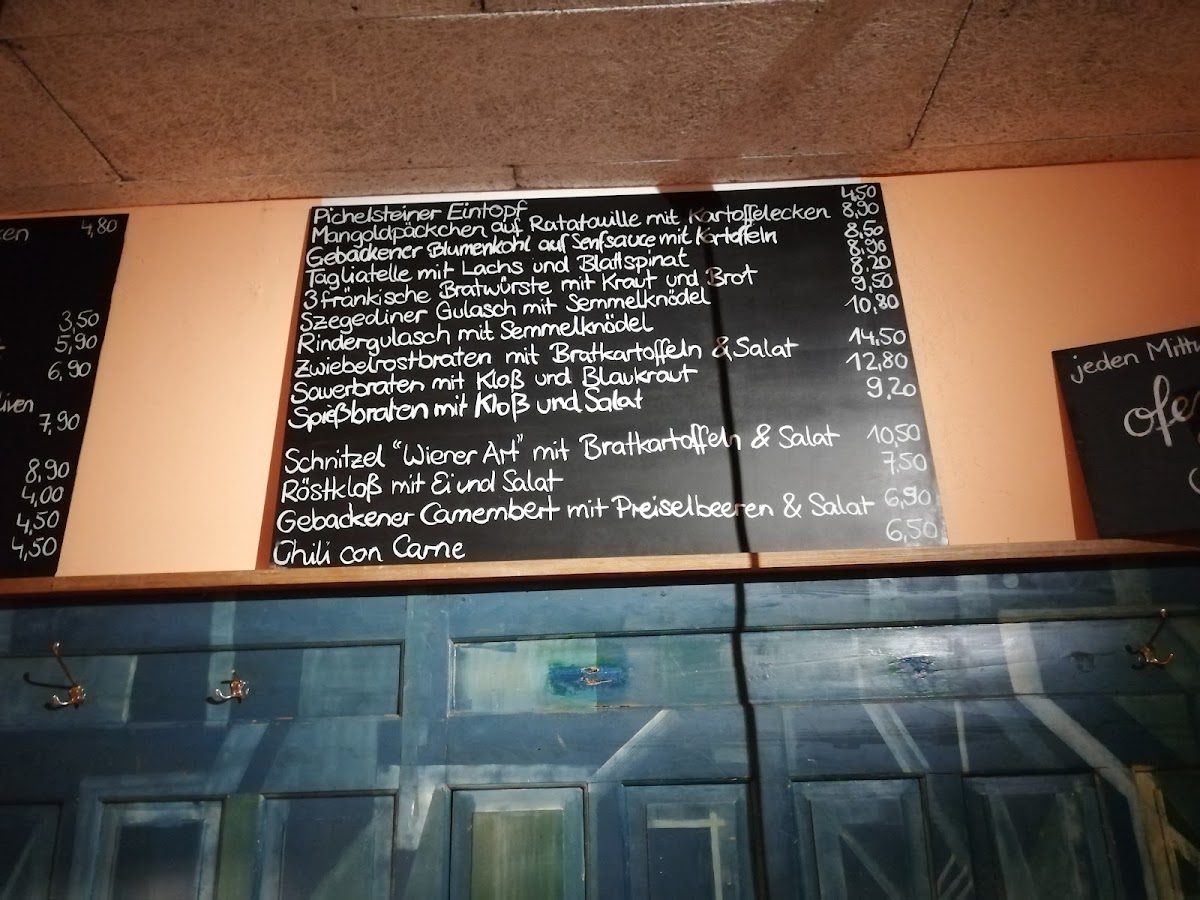 ken 4,80
3,50
5,90
6,90
liven
7,90
8,90
4,00
4,50
4,50
Pichelsteiner Eintopf 4,50
Mangoldpäckchen auf Ratatouille mit Kartoffelecken 8,90
Gebackener Blumenkohl auf Senfsauce mit Kartoffeln 8,50
Tagliatelle mit Lachs und Blattspinat 8,90
3 fränkische Bratwürste mit Kraut und Brot 8,20
Szegediner Gulasch mit Semmelknödel 9,50
Rindergulasch mit Semmelknödel 10,80
Zwiebelrostbraten mit Bratkartoffeln & Salat 14,50
Sauerbraten mit Kloß und Blaukraut 12,80
Spießbraten mit Kloß und Salat 9,20
Schnitzel "Wiener Art" mit Bratkartoffeln & Salat 10,50
Röstkloß mit Ei und Salat 7,50
Gebackener Camembert mit Preiselbeeren & Salat 6,90
Chili con Carne 6,50
jeden Mittw
ofe